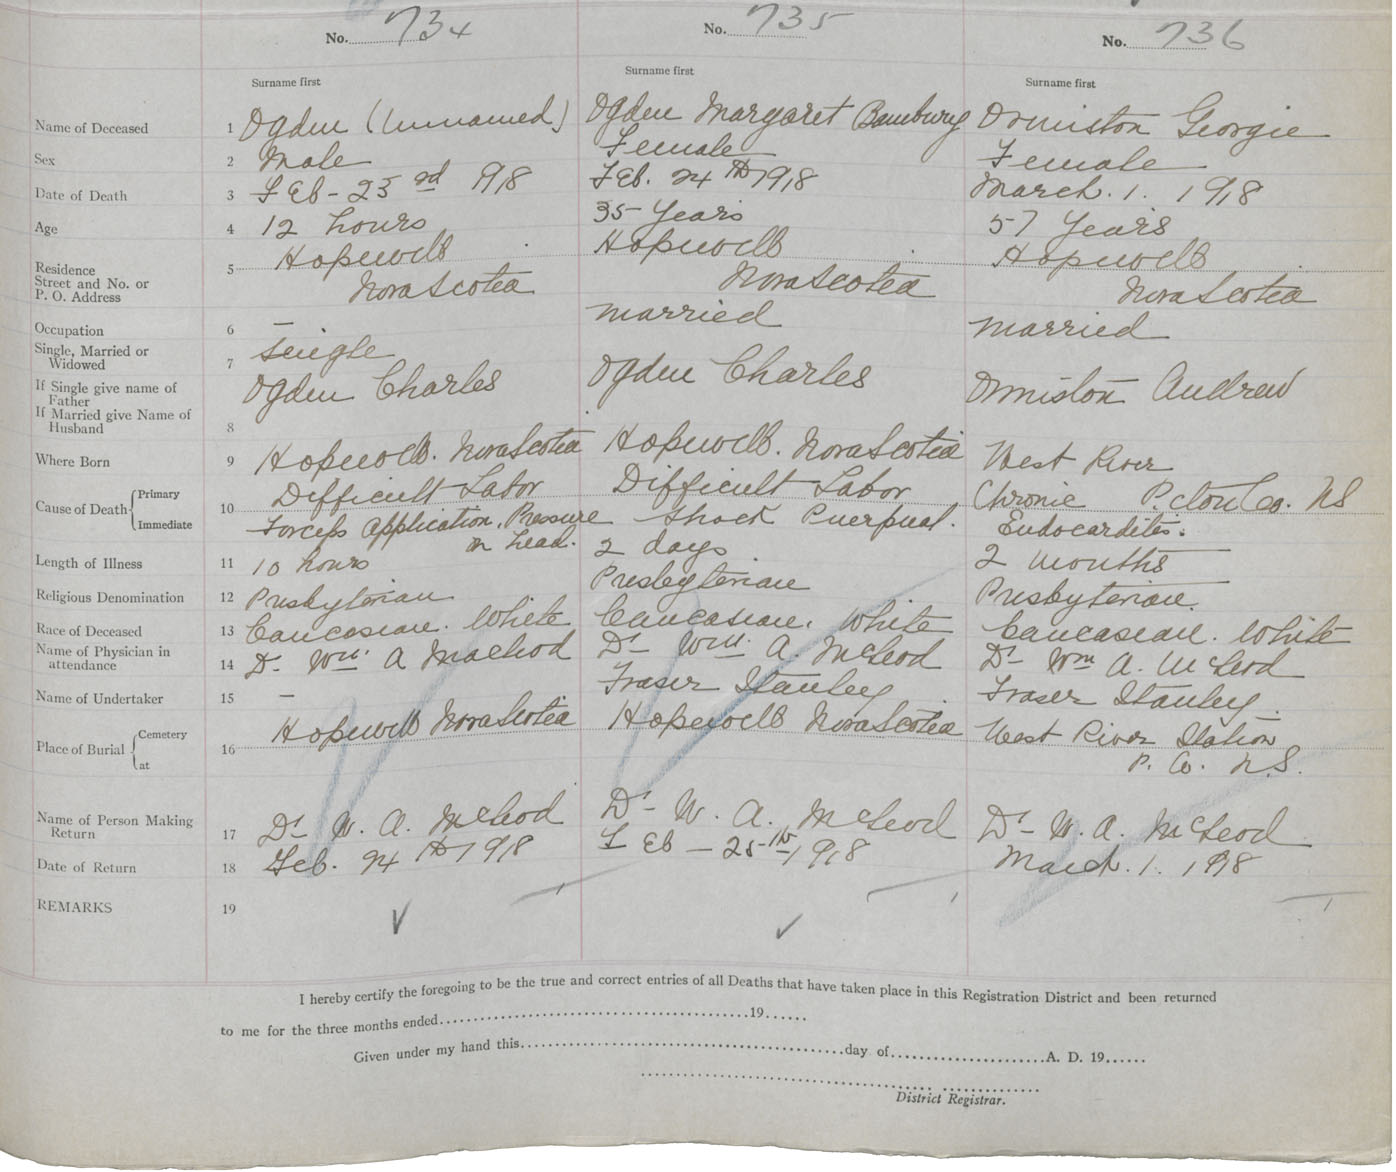 No. 734 No. 735 No. 736
Surname first Surname first Surname first
Name of Deceased 1 Ogden (Unnamed) Ogden Margaret Ormiston Georgie
Sex 2 Male Female Female
Date of Death 3 Feb - 23rd 1918 Feb. 24th 1918 March. 1. 1918
Age 4 12 hours 35 Years 57 Years
Residence Street and No. or P. O. Address 5 Hopewell Hopewell Hopewell
Nova Scotia Nova Scotia Nova Scotia
Occupation 6 — married married
Single, Married or Widowed 7 Single
If Single give name of Father If Married give Name of Husband 8 Ogden Charles Ogden Charles Ormiston Andrew
Where Born 9 Hopewell. Nova Scotia Hopewell. Nova Scotia West River
Pictou Co. NS
Cause of Death Primary 10 Difficult Labor Difficult Labor Chronic
Immediate Forceps Application. Pressure Shock Puerpual. Endocardites.
on head.
Length of Illness 11 10 hours 2 days 2 months
Religious Denomination 12 Presbyterian Presbyterian Presbyterian.
Race of Deceased 13 Caucasian. White Caucasian. White Caucasian. White
Name of Physician in attendance 14 Dr Wm. A MacLeod Dr Wm. A. McLeod Dr Wm A. McLeod
Name of Undertaker 15 — Fraser Stanley Fraser Stanley.
Place of Burial Cemetery at 16 Hopewell Nova Scotia Hopewell Nova Scotia West River Station
P. Co. N.S.
Name of Person Making Return 17 Dr W. A. McLeod Dr W. A. McLeod Dr W. A. McLeod
Date of Return 18 Feb. 24th 1918 Feb — 25th 1918 March. 1. 1918
REMARKS 19
I hereby certify the foregoing to be the true and correct entries of all Deaths that have taken place in this Registration District and been returned
to me for the three months ended........................................19......
Given under my hand this........................................day of......................A. D. 19......
District Registrar.